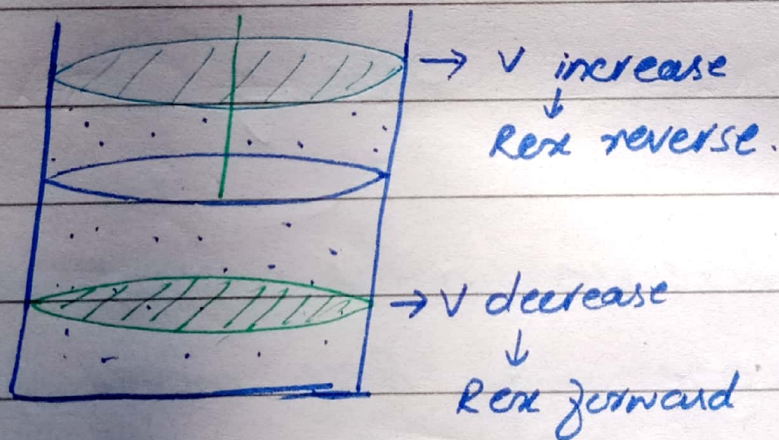 → V increase
↓
Rex reverse.
→ V decrease
↓
Rex forward